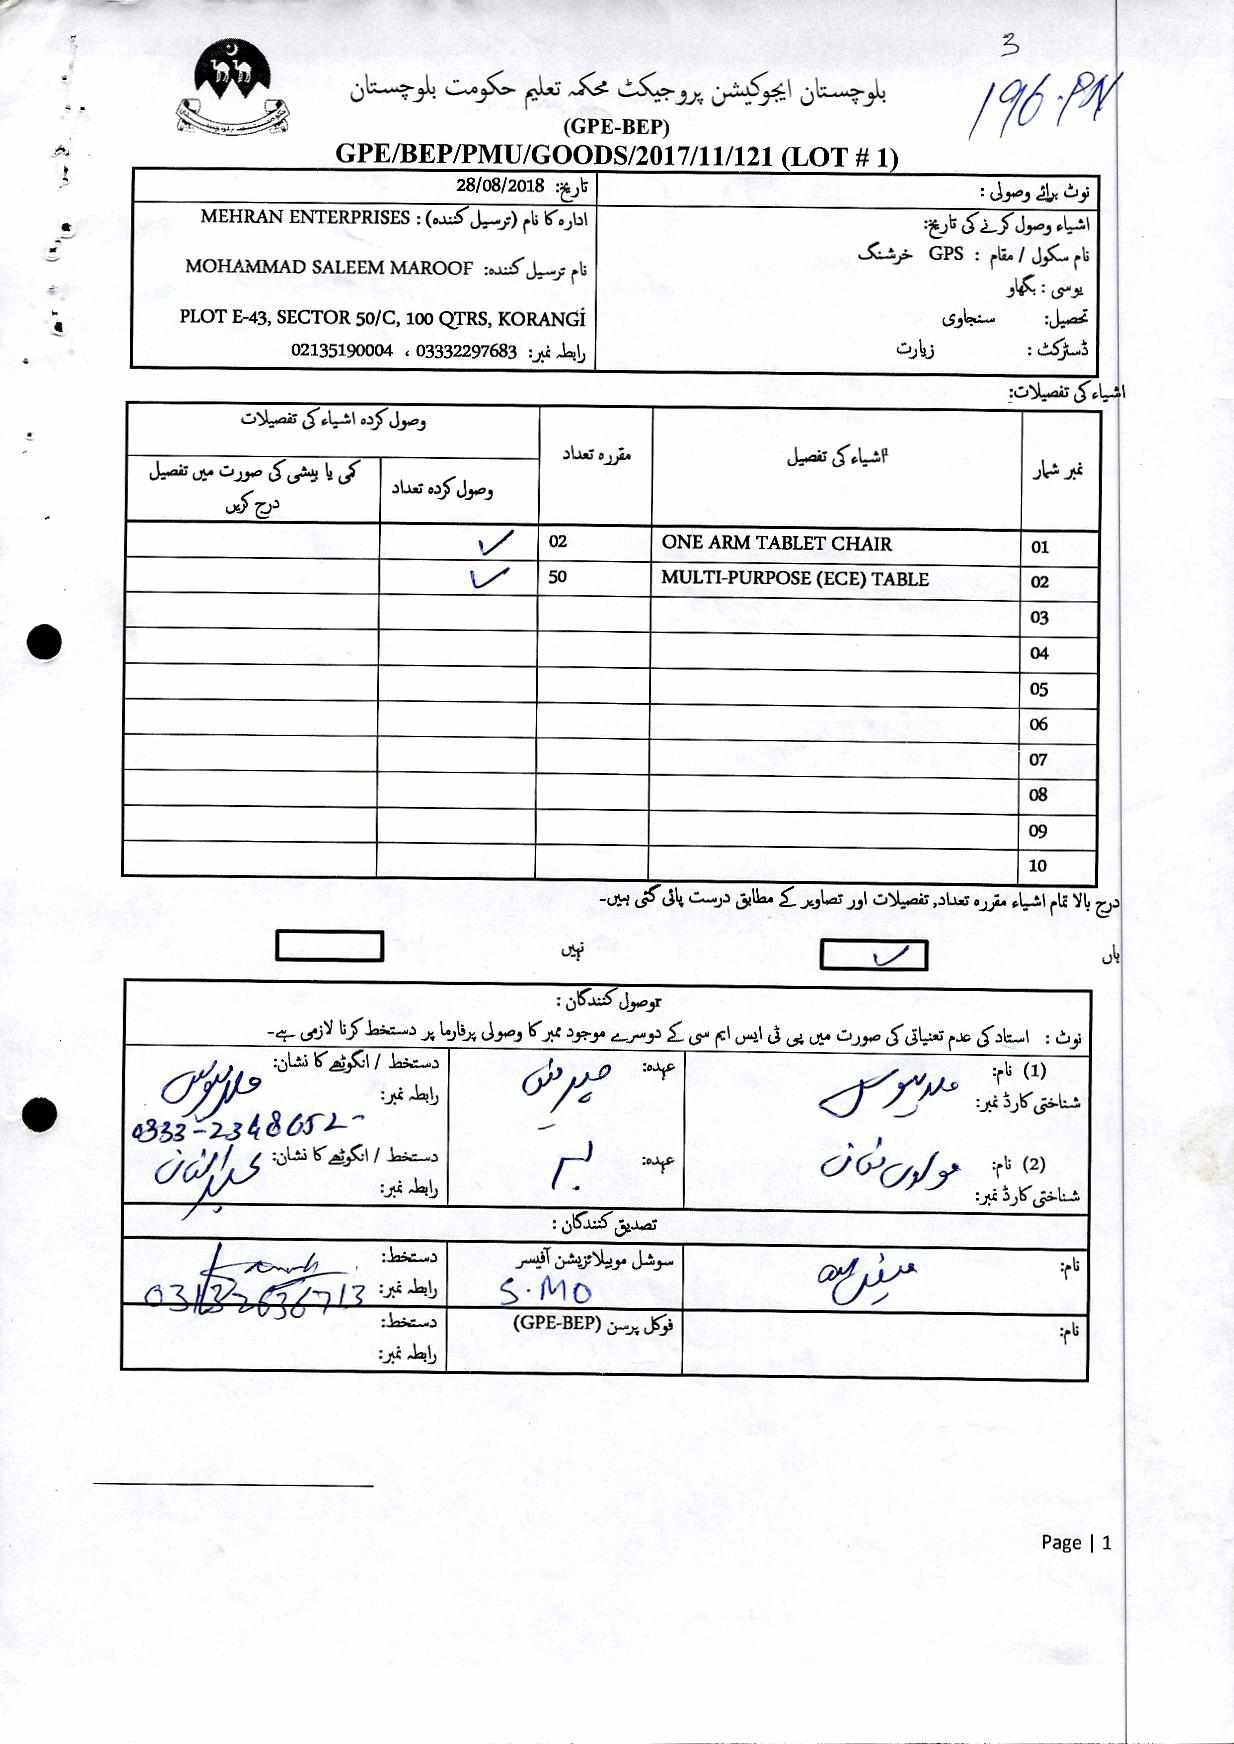 3
196-PN
بلوچستان ایجوکیشن پروجیکٹ محکمہ تعلیم حکومت بلوچستان
(GPE-BEP)
GPE/BEP/PMU/GOODS/2017/11/121 (LOT # 1)
نوٹ برائے وصولی :
تاریخ: 28/08/2018
اشیاء وصول کرنے کی تاریخ:
نام سکول / مقام : GPS خرشنگ
یوسی : بگھاو
تحصیل: سنجاوی
ڈسٹرکٹ : زیارت
ادارہ کا نام (ترسیل کنندہ) : MEHRAN ENTERPRISES
نام ترسیل کنندہ: MOHAMMAD SALEEM MAROOF
PLOT E-43, SECTOR 50/C, 100 QTRS, KORANGİ
رابطہ نمبر: 03332297683 ، 02135190004
اشیاء کی تفصیلات:
نمبر شمار اشیاء کی تفصیل مقررہ تعداد وصول کردہ اشیاء کی تفصیلات
وصول کردہ تعداد کمی یا بیشی کی صورت میں تفصیل درج کریں
01 ONE ARM TABLET CHAIR 02 ✓
02 MULTI-PURPOSE (ECE) TABLE 50 ✓
03
04
05
06
07
08
09
10
درج بالا تمام اشیاء مقررہ تعداد, تفصیلات اور تصاویر کے مطابق درست پائی گئی ہیں۔
ہاں ✓ نہیں
وصول کنندگان :
نوٹ : استاد کی عدم تعنیاتی کی صورت میں پی ٹی ایس ایم سی کے دوسرے موجود ممبر کا وصولی پرفارما پر دستخط کرنا لازمی ہے۔
(1) نام: عہدہ: دستخط / انگوٹھے کا نشان:
شناختی کارڈ نمبر: رابطہ نمبر:
0333-2348052
(2) نام: عہدہ: دستخط / انگوٹھے کا نشان:
شناختی کارڈ نمبر: رابطہ نمبر:
تصدیق کنندگان :
نام: سوشل موبیلائزیشن آفیسر دستخط:
S.MO رابطہ نمبر:
نام: فوکل پرسن (GPE-BEP) دستخط:
رابطہ نمبر:
Page | 1